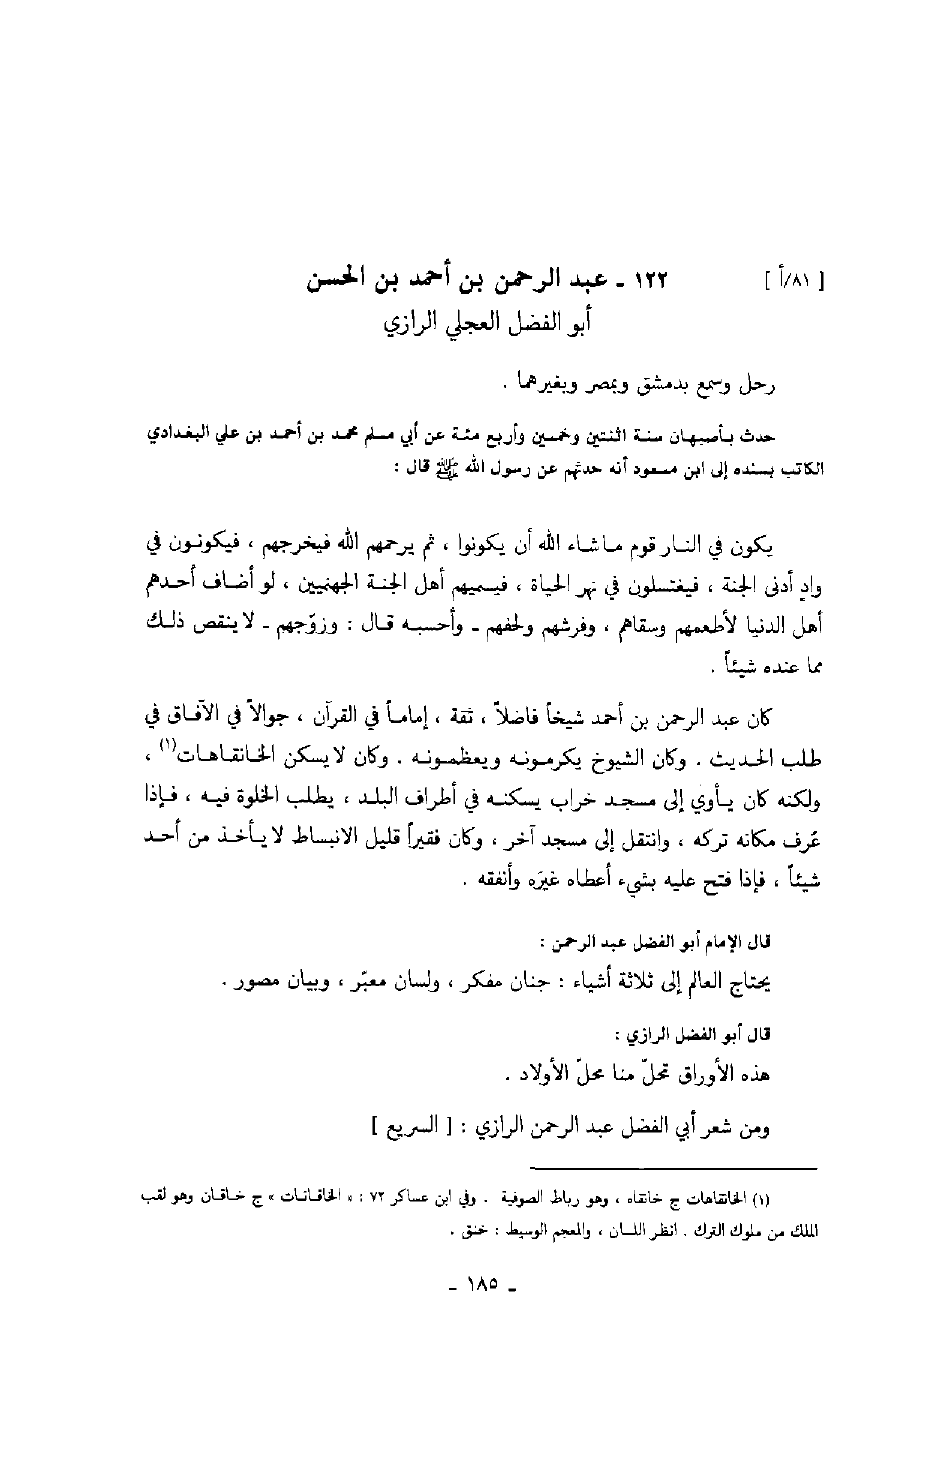 [ ٨١/أ ] ١٢٢ ـ عبد الرحمن بن أحمد بن الحسن
أبو الفضل العجلي الرازي
رحل وسمع بدمشق وبمصر وبغيرهما .
حدث بأصبهان سنة اثنتين وخمسين وأربع مئة عن أبي مسلم محمد بن أحمد بن علي البغدادي
الكاتب بسنده إلى ابن مسعود أنه حدثهم عن رسول الله ﷺ قال :
يكون في النار قوم ماشاء الله أن يكونوا ، ثم يرحمهم الله فيخرجهم ، فيكونون في
وادٍ أدنى الجنة ، فيغتسلون في نهر الحياة ، فيسميهم أهل الجنة الجهنميين ، لو أضاف أحدهم
أهل الدنيا لأطعمهم وسقاهم ، وفرشهم ولحفهم ـ وأحسبه قال : وزوّجهم ـ لاينقص ذلك
مما عنده شيئاً .
كان عبد الرحمن بن أحمد شيخاً فاضلاً ، ثقة ، إماماً في القرآن ، جوالاً في الآفاق في
طلب الحديث . وكان الشيوخ يكرمونه ويعظمونه . وكان لايسكن الخانقاهات(١) ،
ولكنه كان يأوي إلى مسجد خراب يسكنه في أطراف البلد ، يطلب الخلوة فيه ، فإذا
عُرف مكانه تركه ، وانتقل إلى مسجد آخر ، وكان فقيراً قليل الانبساط لايأخذ من أحد
شيئاً ، فإذا فتح عليه بشيء أعطاه غيرَه وأنفقه .
قال الإمام أبو الفضل عبد الرحمن :
يحتاج العالم إلى ثلاثة أشياء : جنان مفكر ، ولسان معبّر ، وبيان مصور .
قال أبو الفضل الرازي :
هذه الأوراق تحلّ منا محلّ الأولاد .
ومن شعر أبي الفضل عبد الرحمن الرازي : [ السريع ]
(١) الخانقاهات ج خانقاه ، وهو رباط الصوفية . وفي ابن عساكر ٧٢ : « الخاقانات » ج خاقان وهو لقب
الملك من ملوك الترك . انظر اللسان ، والمعجم الوسيط : خنق .
ـ ١٨٥ ـ